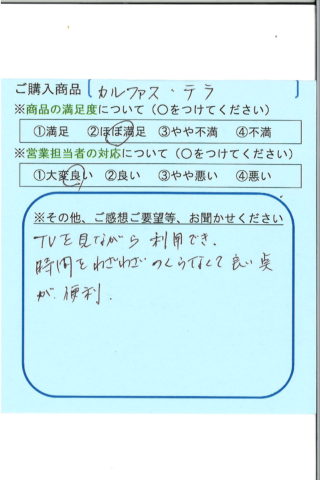 ご購入商品 カルファス・テラ
※商品の満足度について（○をつけてください）
①満足 ②ほぼ満足 ③やや不満 ④不満
※営業担当者の対応について（○をつけてください）
①大変良い ②良い ③やや悪い ④悪い
※その他、ご感想ご要望等、お聞かせください
TVを見ながら利用でき、
時間をわざわざつくらなくて良い点
が、便利.